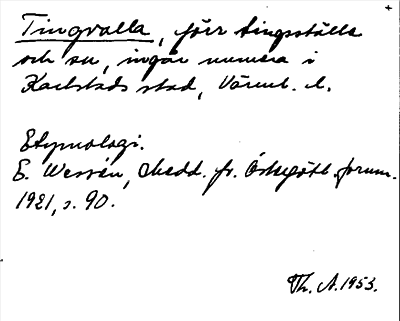 Tingvalla, förr tingsställe
och sn, ingår numera i
Karlstads stad, Värml. l.
Etymologi.
E. Wessén, Medd. fr. Östergötl. fornm.
1921, s. 90.
Th. A. 1953.